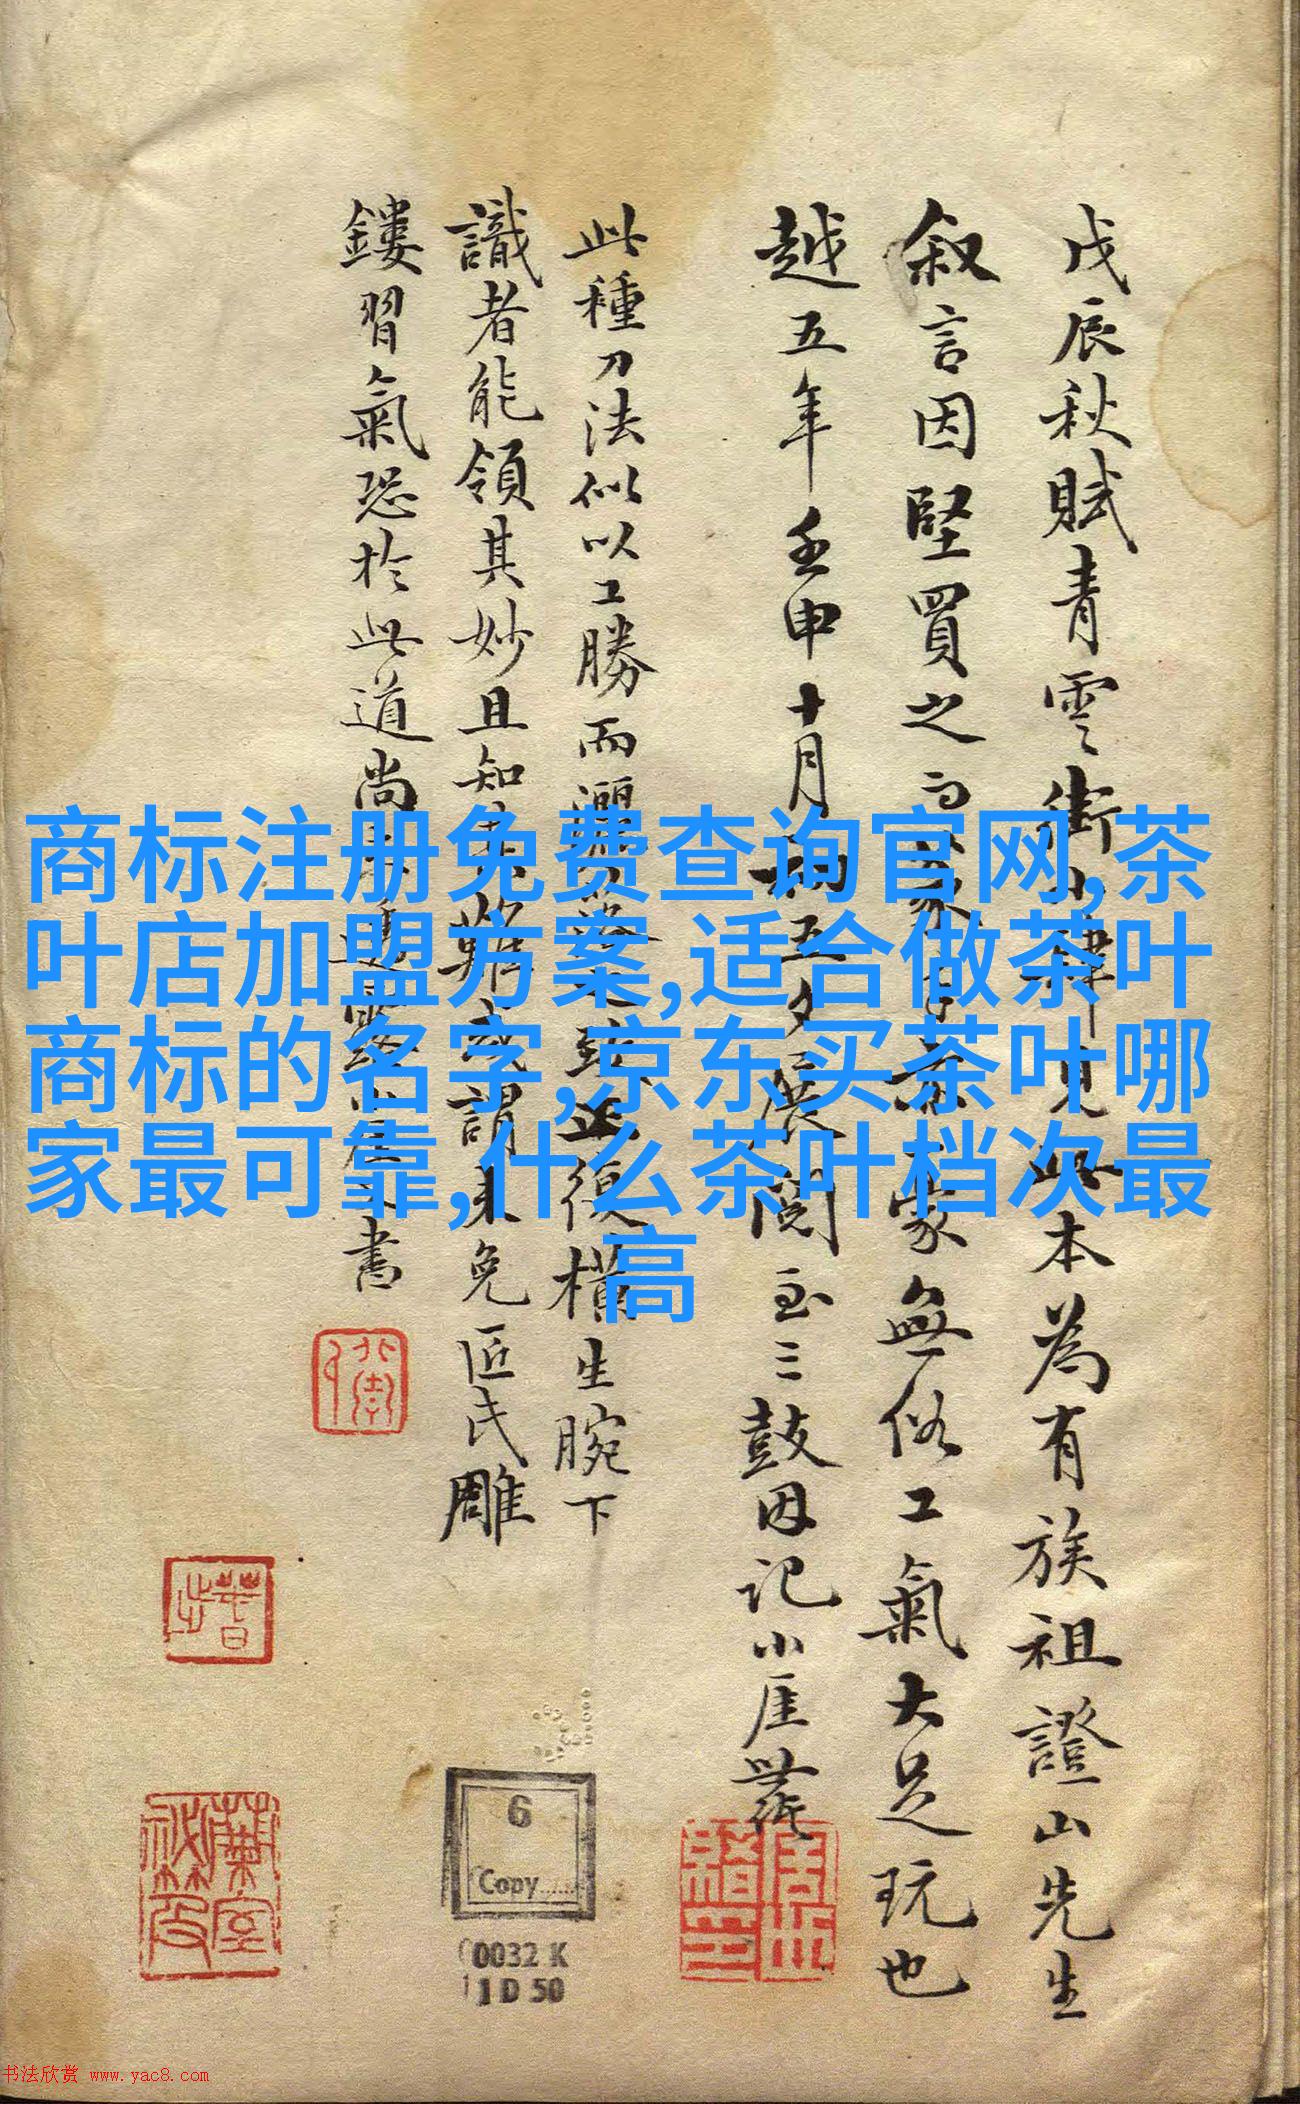 戊辰秋賦青雲街小肆見此本為有族祖證山先生
叙言因堅買之
無俗工氣大足玩也
越五年壬申十月初五夕展閱至三鼓因記小厓
此種刀法似以工勝而
復橫生腕下
識者能領其妙且知
難
謂未免匠氏雕
鏤習氣恐於此道尚
書
商标注册免费查询官网,茶
叶店加盟方案,适合做茶叶
商标的名字,京东买茶叶哪
家最可靠,什么茶叶档次最
高
6
Copy
0032 K
1 D 50
书法欣赏 www.yac8.com